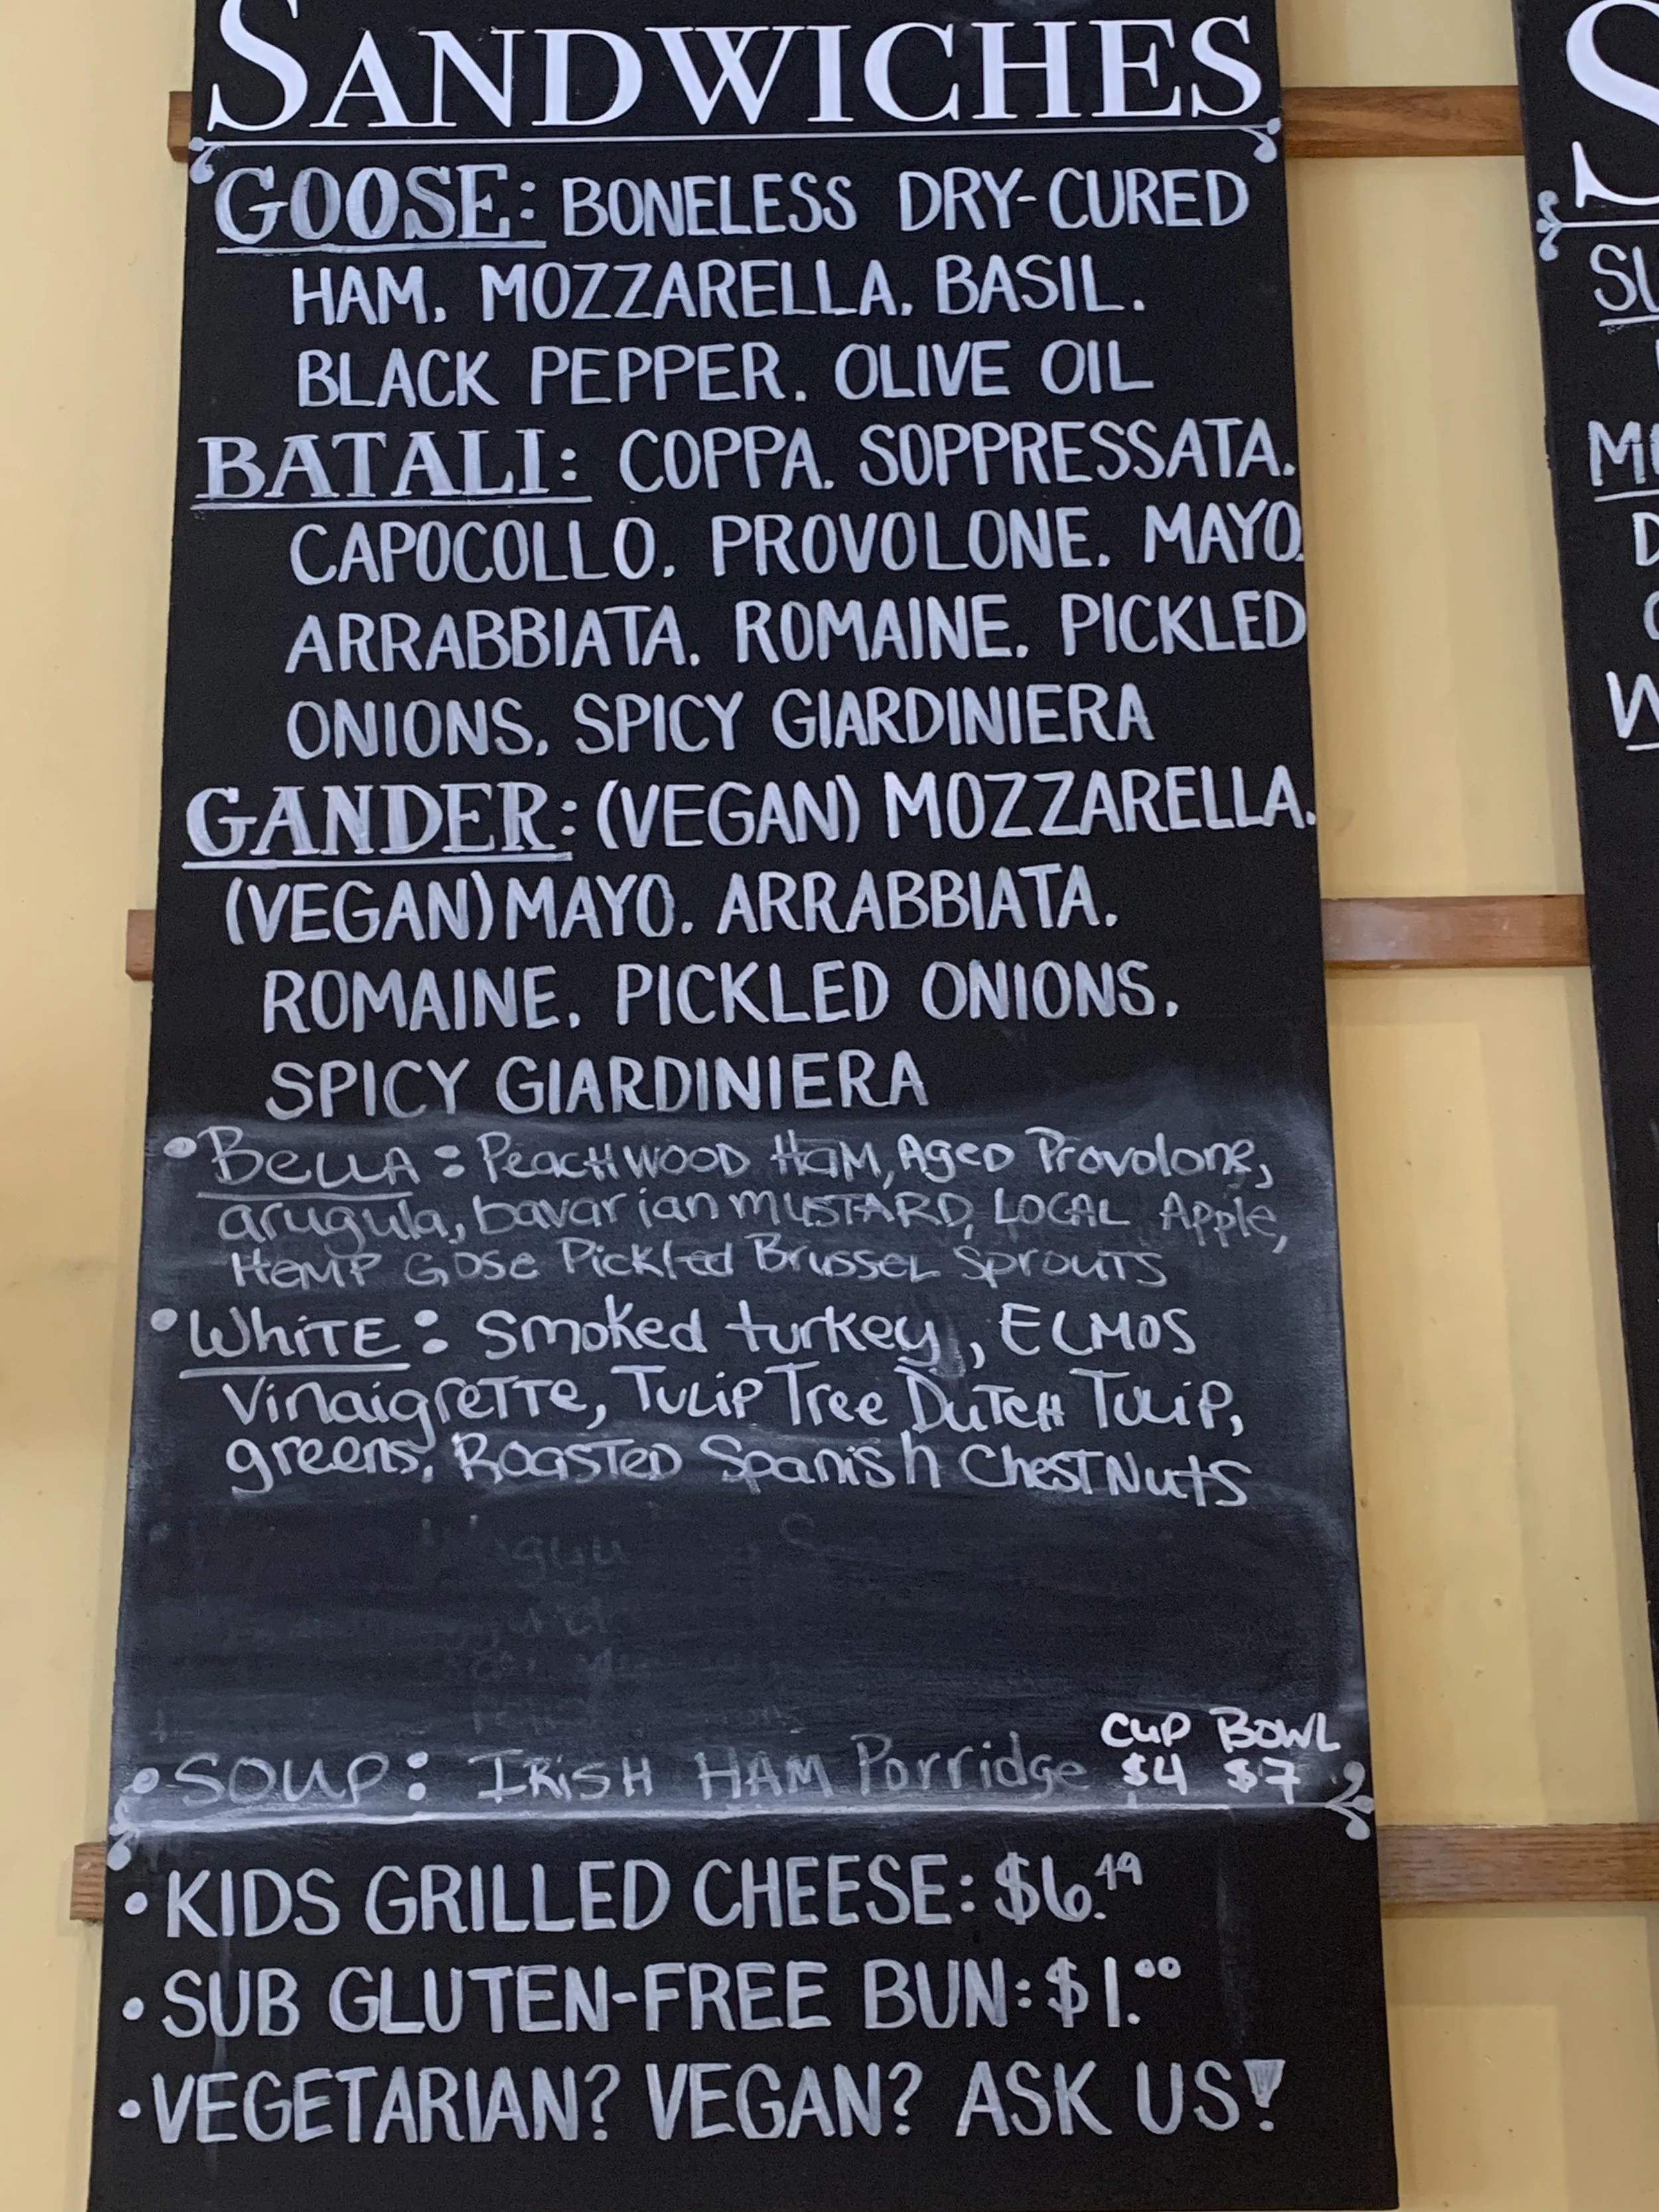 SANDWICHES
GOOSE: BONELESS DRY-CURED
HAM, MOZZARELLA, BASIL,
BLACK PEPPER, OLIVE OIL
BATALI: COPPA, SOPPRESSATA,
CAPOCOLLO, PROVOLONE, MAYO,
ARRABBIATA, ROMAINE, PICKLED
ONIONS, SPICY GIARDINIERA
GANDER: (VEGAN) MOZZARELLA,
(VEGAN) MAYO, ARRABBIATA,
ROMAINE, PICKLED ONIONS,
SPICY GIARDINIERA
• BELLA: PeacHWOOD HaM, Aged Provolone,
arugula, bavarian MUSTARD, LOCAL Apple,
HeMP GOSe Pickled Brussel Sprouts
• WhiTE: Smoked turkey, ELMOS
VinaigreTTe, TuLip Tree DuTcH TuLiP,
greens, RoasTeD Spanish ChesTNuts
CUP BOWL
• SOUP: IRiSH HAM Porridge $4 $7
• KIDS GRILLED CHEESE: $6.49
• SUB GLUTEN-FREE BUN: $1.00
• VEGETARIAN? VEGAN? ASK US!